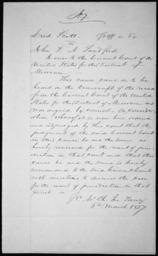 No. 7.
Dred Scott, Ptff in Er
vs
John F. A. Sandford
In error to the Circuit Court of the
United States for the District of
Missouri.
This cause came on to be
heard on the transcript of the record
from the Circuit Court of the United
States for the District of Missouri and
was argued by counsel. On consider
ation whereof, it is now here ordered
and adjudged by this court that the
judgment of the said Circuit Court
in this cause be and the same is
hereby reversed for the want of juris
diction in that court and that this
cause be and the same is hereby
remanded to the said Circuit Court
with directions to dismiss the case
for the want of jurisdiction in that
court
Mr. Ch. Jus. Taney
6th March 1857